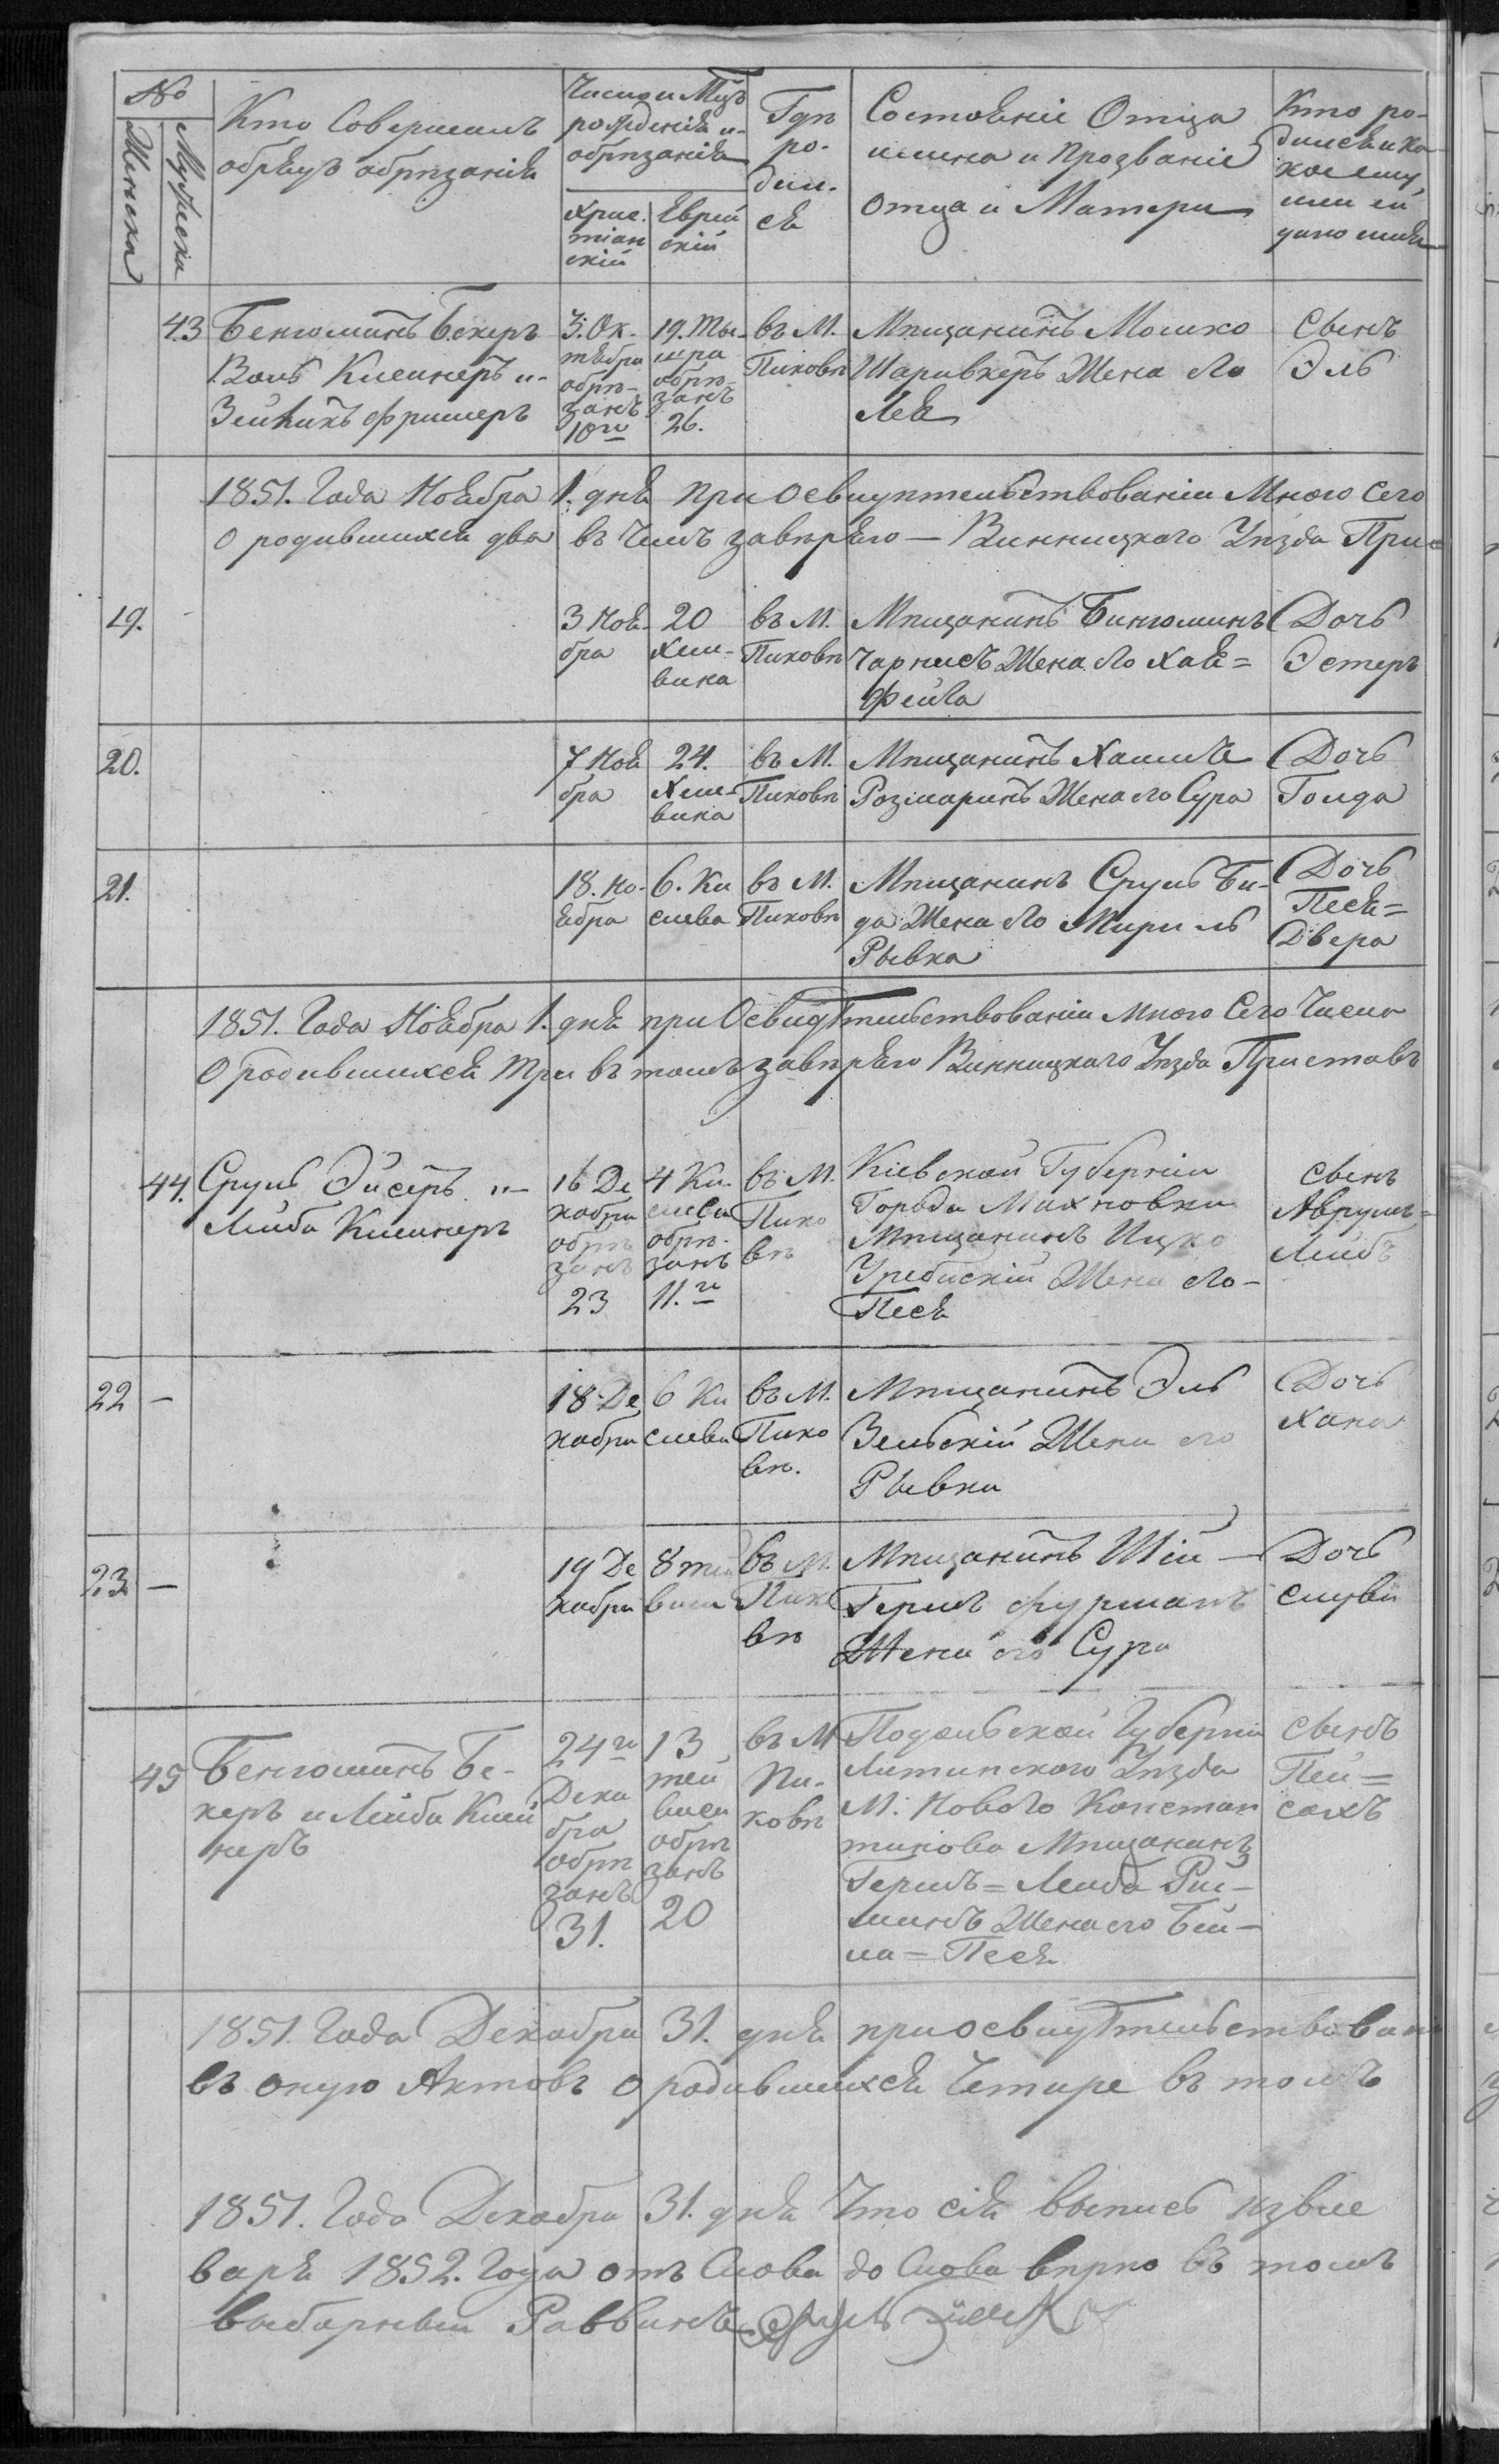 №
Женска
Мужеска
Кто Совершалъ
обрядъ обрѣзанія
Число и Мцъ
рожденія и
обрѣзанія
Хрис.
тіан
скій
Еврей
скій
Гдѣ
ро-
дил-
ся
Состояніе Отца
имена и Прозваніе
Отца и Матери
Кто ро-
дился и ка-
кое ему
или ей
дано имя
43
Бенюминъ Бекеръ
Волъ Клейнеръ и
Зейликъ Фришеръ
3. Ок-
тября
обрѣ-
занъ
10го
19. Ты-
шра
обрѣ-
занъ
26.
въ М.
Пиковѣ
Мѣщанинъ Мошко
Шаривкеръ Жена Его
Лея
Сынъ
Эль
1851. Года Ноября 1. дня при освидѣтельствованіи Мною Сего
О родившихся два въ чемъ завѣряю — Винницкаго Уѣзда При-
19.
3 Ноя-
бра
20
Хеш-
вина
въ М.
Пиковѣ
Мѣщанинъ Бинюминъ
Чарнисъ Жена Его Хая=
Фейга
Дочь
Эстеръ
20.
7 Ноя
бра
24.
Хеш-
вина
въ М.
Пиковѣ
Мѣщанинъ Хаимъ
Розмаринъ Жена Его Сура
Дочь
Голда
21.
18. Но-
ября
6. Ки
слева
въ М.
Пиковѣ
Мѣщанинъ Сруль Би-
да Жена Его Мириль
Рывка
Дочь
Песя=
Двера
1851. Года Ноября 1. дня при Освидѣтельствованіи Мною Сего Числа
О родившихся Три въ томъ завѣряю Винницкаго Уѣзда Приставъ
44.
Сруль Эйсеръ и
Лейба Клейнеръ
16 Де
кабря
обрѣ
занъ
23
4 Ки-
слева
обрѣ-
занъ
11.го
въ М.
Пико
вѣ
Кіевской Губерніи
Города Махновки
Мѣщанинъ Ицко
Жена Его-
Песя
Сынъ
Аврумъ=
Лейбъ
22 —
18 Де
кабря
6 Ки
слева
въ М.
Пико
вѣ.
Мѣщанинъ Эль
Зельскій Жена его
Рывка
Дочь
Хана
23. —
19 Де
кабря
8 тей
виса
въ М.
Пико
вѣ
Мѣщанинъ Шій —
Гершъ Фурманъ
Жена его Сура
Дочь
45
Бенюминъ Бе-
керъ и Лейба Клей
неръ
24го
Дека
бра
обрѣ
занъ
31.
13
тей
виса
обрѣ
занъ
20
въ М
Пи-
ковѣ
Подольской Губерніи
Литинского Уѣзда
М. Нового Констан
тинова Мѣщанинъ
Гершъ=Лейба Рой-
Жена его Бей-
ла=Песя
Сынъ
Пей=
сахъ
1851. Года Декабря 31. дня при освидѣтельствован
въ оную Актовъ О родившихся Четире въ томъ
1851. Года Декабря 31. дня Что сія выпись извле
варя 1852. Года отъ Слова до Слова вѣрно въ томъ
выборный Раввинъ